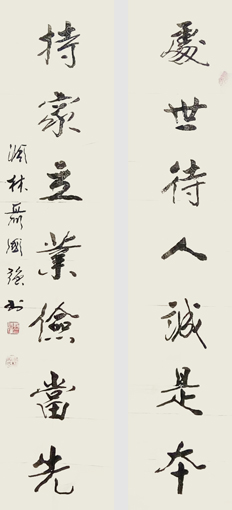 處世待人誠是本
持家立業儉當先
林聶國強書